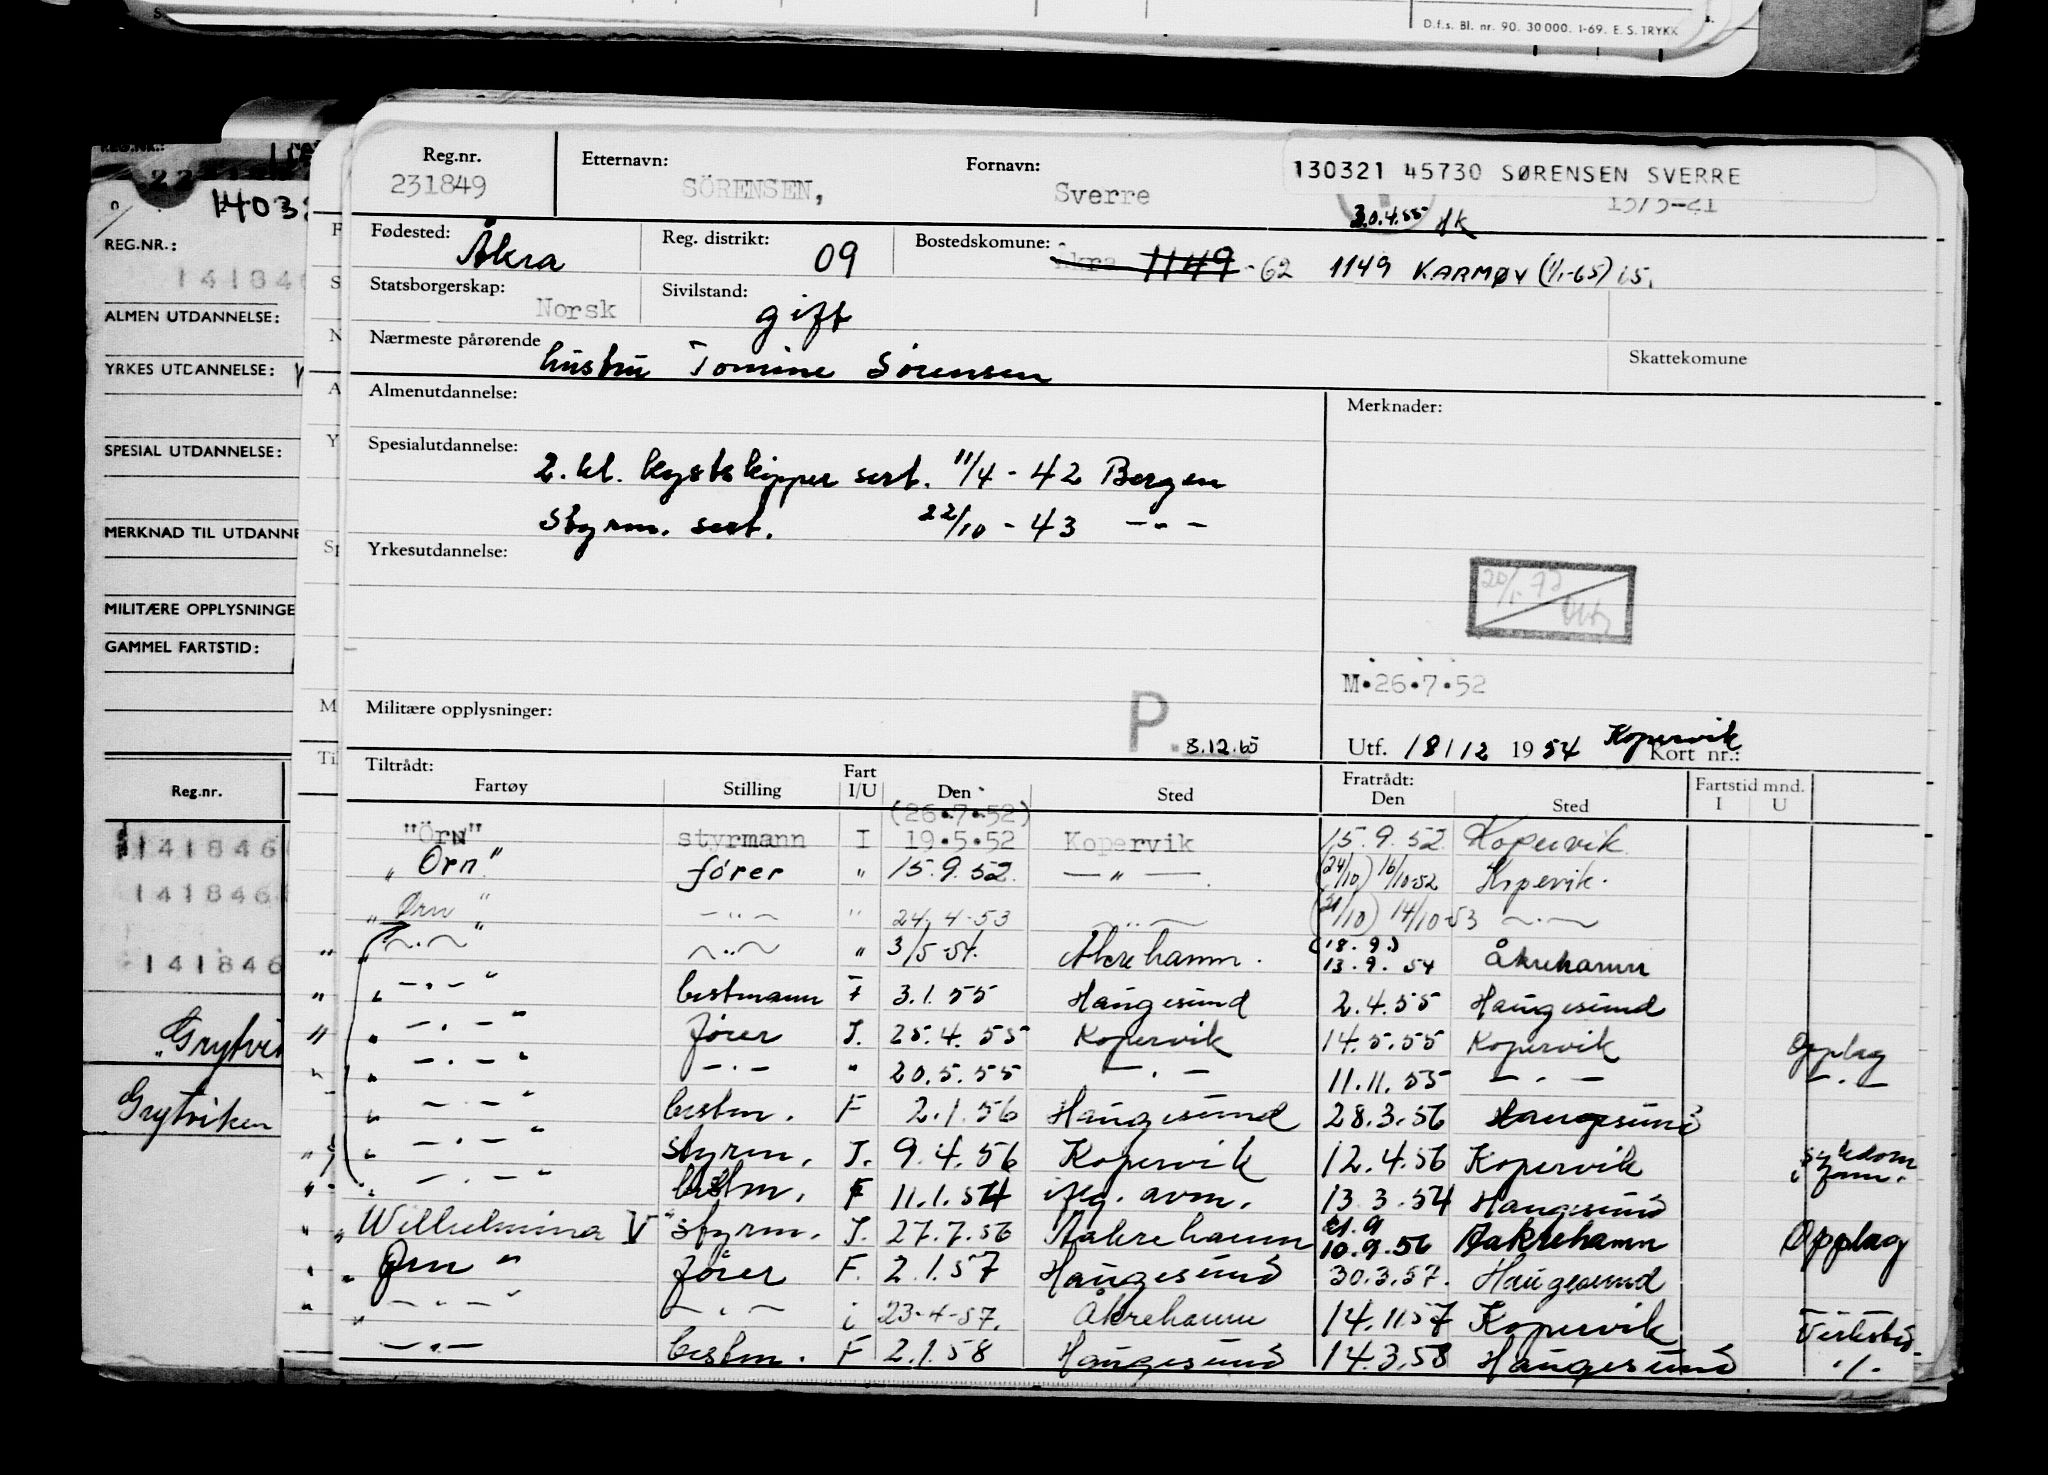 D.f.s. Bl. nr. 90. 30000. 1-69. E. S. TRYKK
REG.NR.:
141846
ALMEN UTDANNELSE:
YRKES UTDANNELSE:
SPESIAL UTDANNELSE:
MERKNAD TIL UTDANNE
MILITÆRE OPPLYSNINGE
GAMMEL FARTSTID:
Reg.nr.
141846
141846
141846
Grytvi
Grytviken
Reg.nr. Etternavn: Fornavn:
231849 SÖRENSEN, Sverre 130321 45730 SØRENSEN SVERRE
13/3-21
30.4.55 AK
Fødested: Åkra Reg. distrikt: 09 Bostedskomune: Åkra 1149 -62 1149 KARMØY (1/1-65) is.
Statsborgerskap: Norsk Sivilstand: gift
Nærmeste pårørende hustru Tomine Sørensen Skattekomune
Almenutdannelse: Merknader:
Spesialutdannelse: 2. kl. kystskipper sert. 11/4 - 42 Bergen
Styrm. sert. 22/10 - 43 - " -
Yrkesutdannelse:
M.26.7.52
Militære opplysninger: P. 8.12.65
Utf. 18/12 1954 Kopervik Kort nr.:
Tiltrådt: Fartøy Stilling Fart I/U Den Sted Fratrådt: Den Sted Fartstid mnd. I U
(26.7.52)
"Örn" styrmann I 19.5.52 Kopervik 15.9.52 Kopervik
"Örn" fører " 15.9.52. — " — (24/10) 16/10-52 Kopervik.
"Ørn" — " — " 24.4-53 — " — (21/10) 14/10-53 — " —
" — " — " — " — " 3/5-54. Åkrehamn. (18.9.) 13.9.54 Åkrehamn
" " — " — " bestmann F 3.1.55 Haugesund 2.4.55 Haugesund
" " — " — " fører I. 25.4.55 Kopervik 14.5.55 Kopervik Opplag
" " — " — " — " — " 20.5.55 — " — 11.11.55 — " — — " —
" " — " — " bestm. F 2.1.56 Haugesund 28.3.56 Haugesund
" " — " — " styrm. I. 9.4.56 Kopervik 12.4.56 Kopervik sykdom i fam.
" " — " — " bestm. F 11.1.54 iflg. avm. 13.3.54 Haugesund
" "Wilhelmina V" styrm. I. 27.7.56 Aakrehamn 21.9 10.9.56 Aakrehamn Opplag
" "Ørn" fører F. 2.1.57 Haugesund 30.3.57. Haugesund
" " — " — " — " — i 23-4-57. Åkrehamn 14.11.57 Kopervik
— " — bestm. F 2.1.58 Haugesund 14.3.58 Haugesund -/-